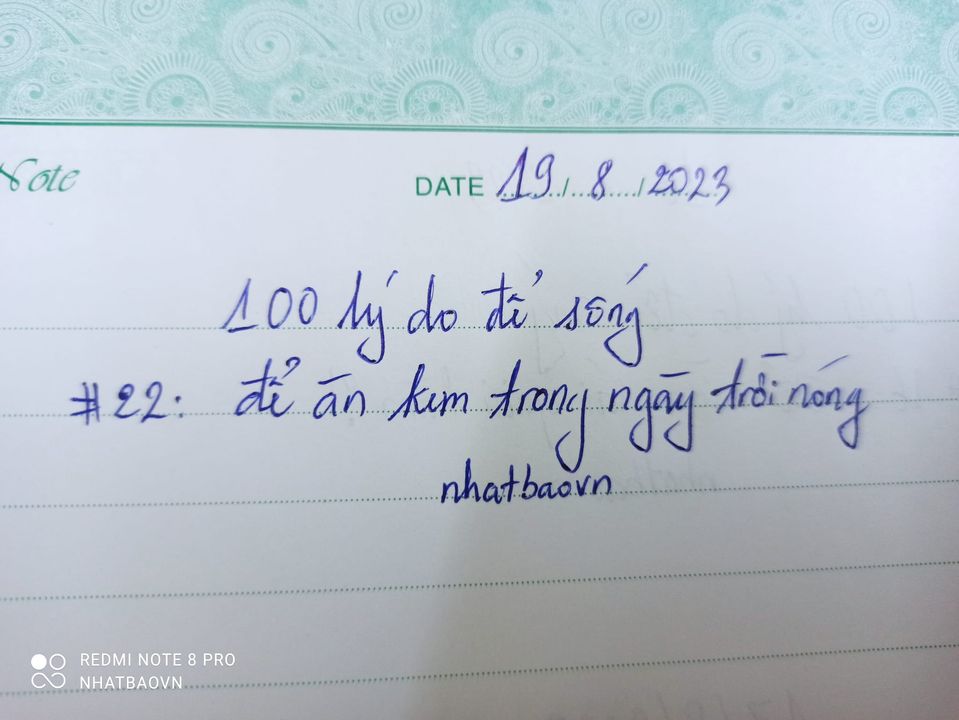 Note
DATE 19/8/2023
100 lý do để sống
#22: để ăn kem trong ngày trời nóng
nhatbaovn
REDMI NOTE 8 PRO
NHATBAOVN